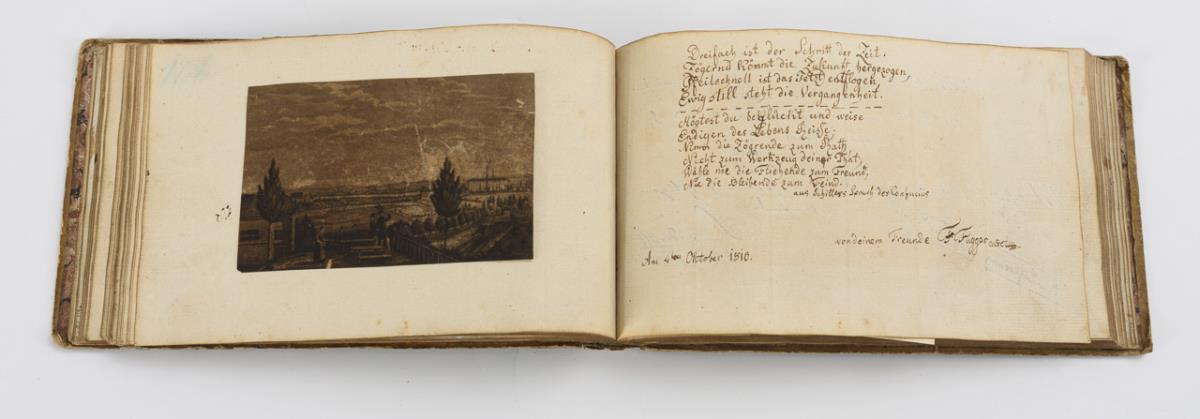 Dreifach ist der Schritt der Zeit.
Zögernd kömmt die Zukunft hergezogen,
Pfeilschnell ist das Jetzt entflogen,
Ewig still steht die Vergangenheit.
Mögtest du beglückt und weise
Endigen des Lebens Reise;
Nimm die Zögernde zum Rath,
Nicht zum Werkzeug deiner That;
Wähle nie die Fliehende zum Freund,
Nie die Bleibende zum Feind.
aus Schillers Spruch des Confucius
von deinem Freunde
Am 4ten Oktober 1810.